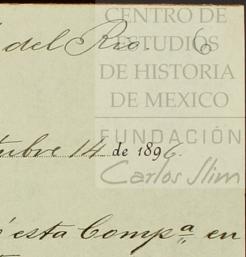 CENTRO DE
del Rio. 6
ESTUDIOS
DE HISTORIA
DE MEXICO
FUNDACIÓN
tubre 14 de 1896.
Carlos Slim
esta Compª en